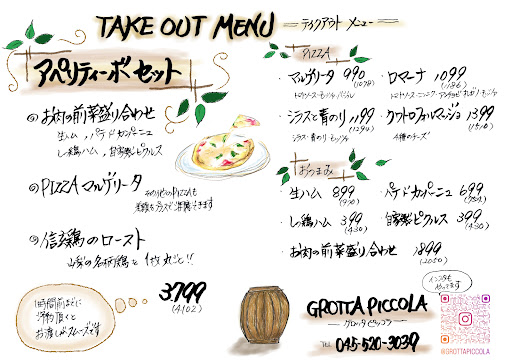 TAKE OUT MENU
テイクアウト メニュー
アペリティーボ セット
お肉の前菜盛り合わせ
生ハム, パテドカンパーニュ
しっとり鶏ハム, 自家製ピクルス
PIZZA マルゲリータ
その他のPIZZAも
信玄鶏のロースト
山梨の名柄鶏を 1枚丸ごと!!
1時間前までに
ご予約頂くと
お渡しがスムーズです
3799
(4102)
PIZZA
・マルゲリータ 990
(1078)
・ロマーナ 1099
(1186)
・シラスと青のり 1199
(1294)
シラス・青のり・モッツァレラ
・クワトロフォルマッジョ 1399
(1510)
4種のチーズ
おつまみ
・生ハム 899
(970)
・パテドカンパーニュ 699
・しっとり鶏ハム 399
(430)
・自家製ピクルス 399
(430)
・お肉の前菜盛り合わせ 1899
(2050)
インスタも
やってます
GROTTA PICCOLA
グロッタ ピッコラ
TEL 045-520-3039
@GROTTAPICCOLA